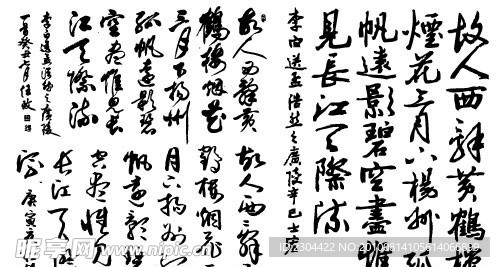 故人西辭黃鶴樓
煙花三月下楊州孤
帆遠影碧空盡惟
見長江天際流
李白送孟浩然之廣陵辛巳
故人西辭黃
鶴樓烟花
三月下揚州
孤帆遠影碧
空盡惟見長
江天際流
李白送孟浩然之廣陵
故人西辭
鶴樓烟花
月下揚州
帆遠影
空盡惟
長江天
流 庚寅
昵享网 www.nipic.cn